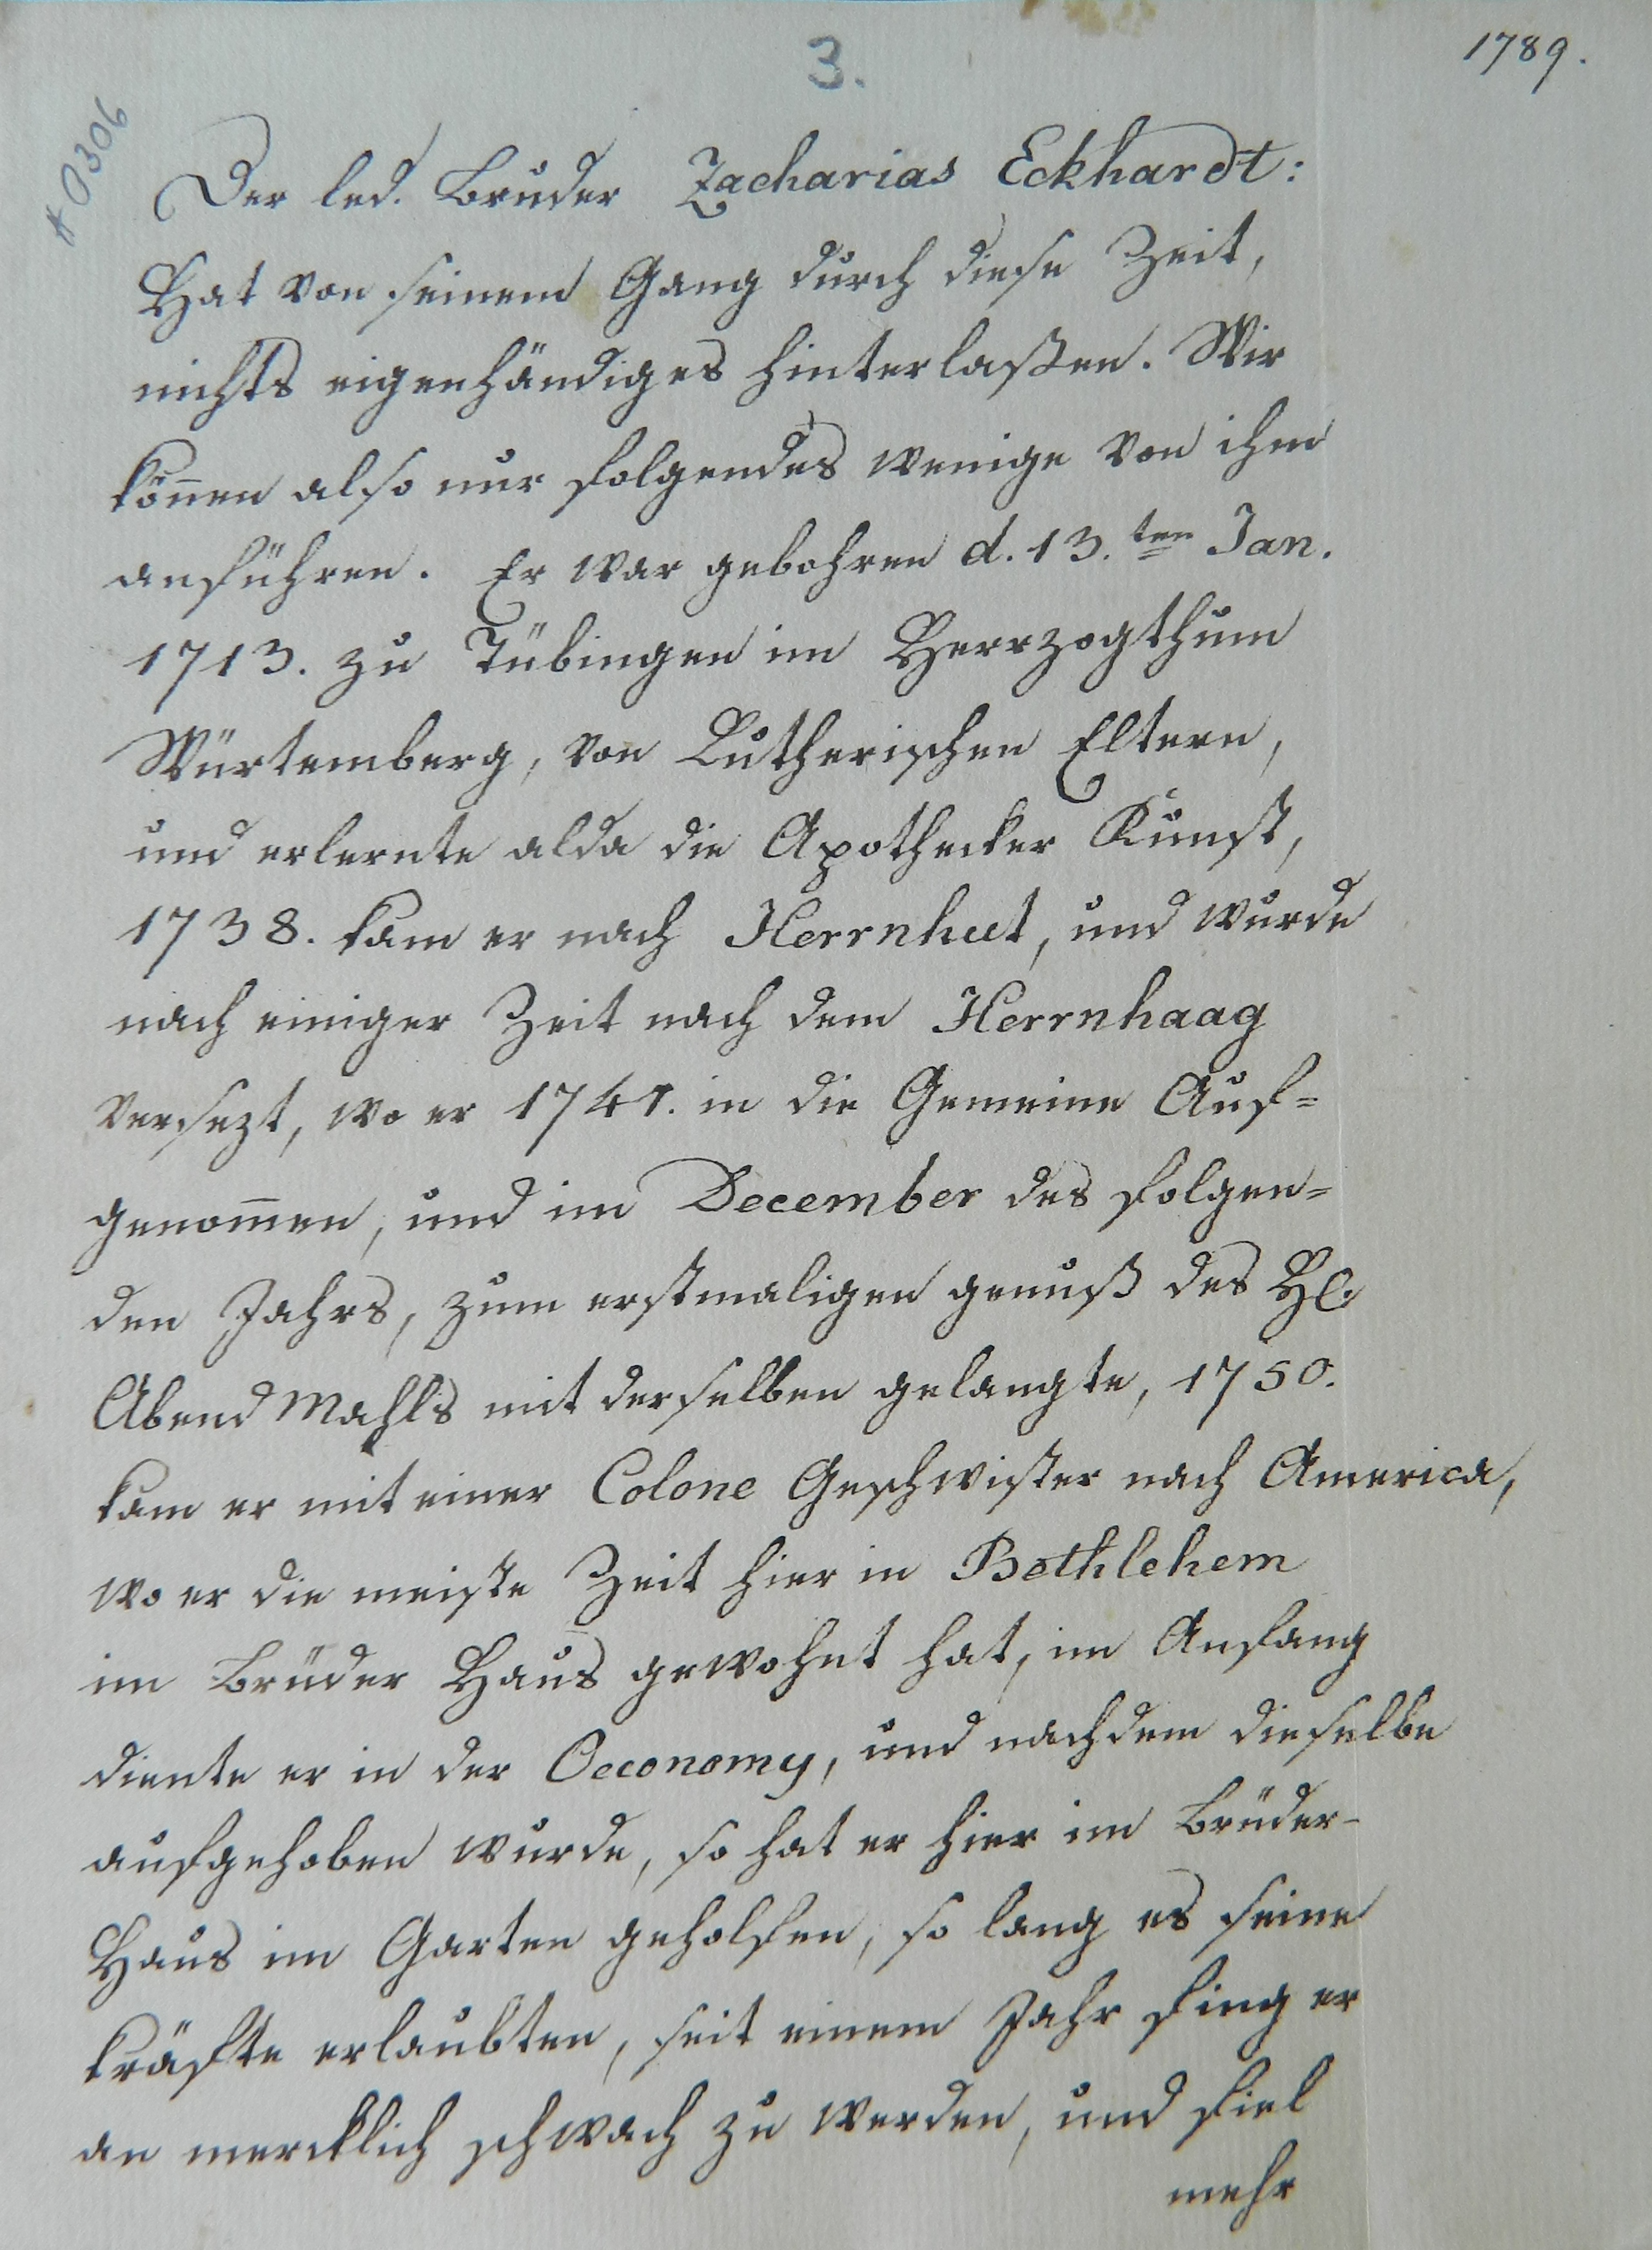 3.
1789.
# 0306
Der led. Bruder Zacharias Eckhardt:
Hat von seinem Gang durch diese Zeit,
nichts eigenhändiges hinterlaßen. Wir
köñen also nur folgendes wenige von ihm
anführen. Er war gebohren d. 13.ten Jan.
1713. zu Tübingen im Herrzogthum
Würtemberg, von Lutherischen Eltern,
und erlernte alda die Apothecker Kunst,
1738. kam er nach Herrnhut, und wurde
nach einiger Zeit nach dem Herrnhaag
versezt, wo er 1741. in die Gemeine Auf=
genom̄en, und im December des folgen=
den Jahrs, zum erstmaligen genuß des Hl.
Abend Mahls mit derselben gelangte, 1750.
kam er mit einer Colone Geschwister nach America,
wo er die meiste Zeit hier in Bethlehem
im Brüder Haus gewohnt hat, im Anfang
diente er in der Oeconomy, und nachdem dieselbe
aufgehoben wurde, so hat er hier im Brüder-
Haus im Garten geholfen, so lang es seine
kräfte erlaubten, seit einem Jahr fing er
an mercklich schwach zu werden, und fiel
mehr